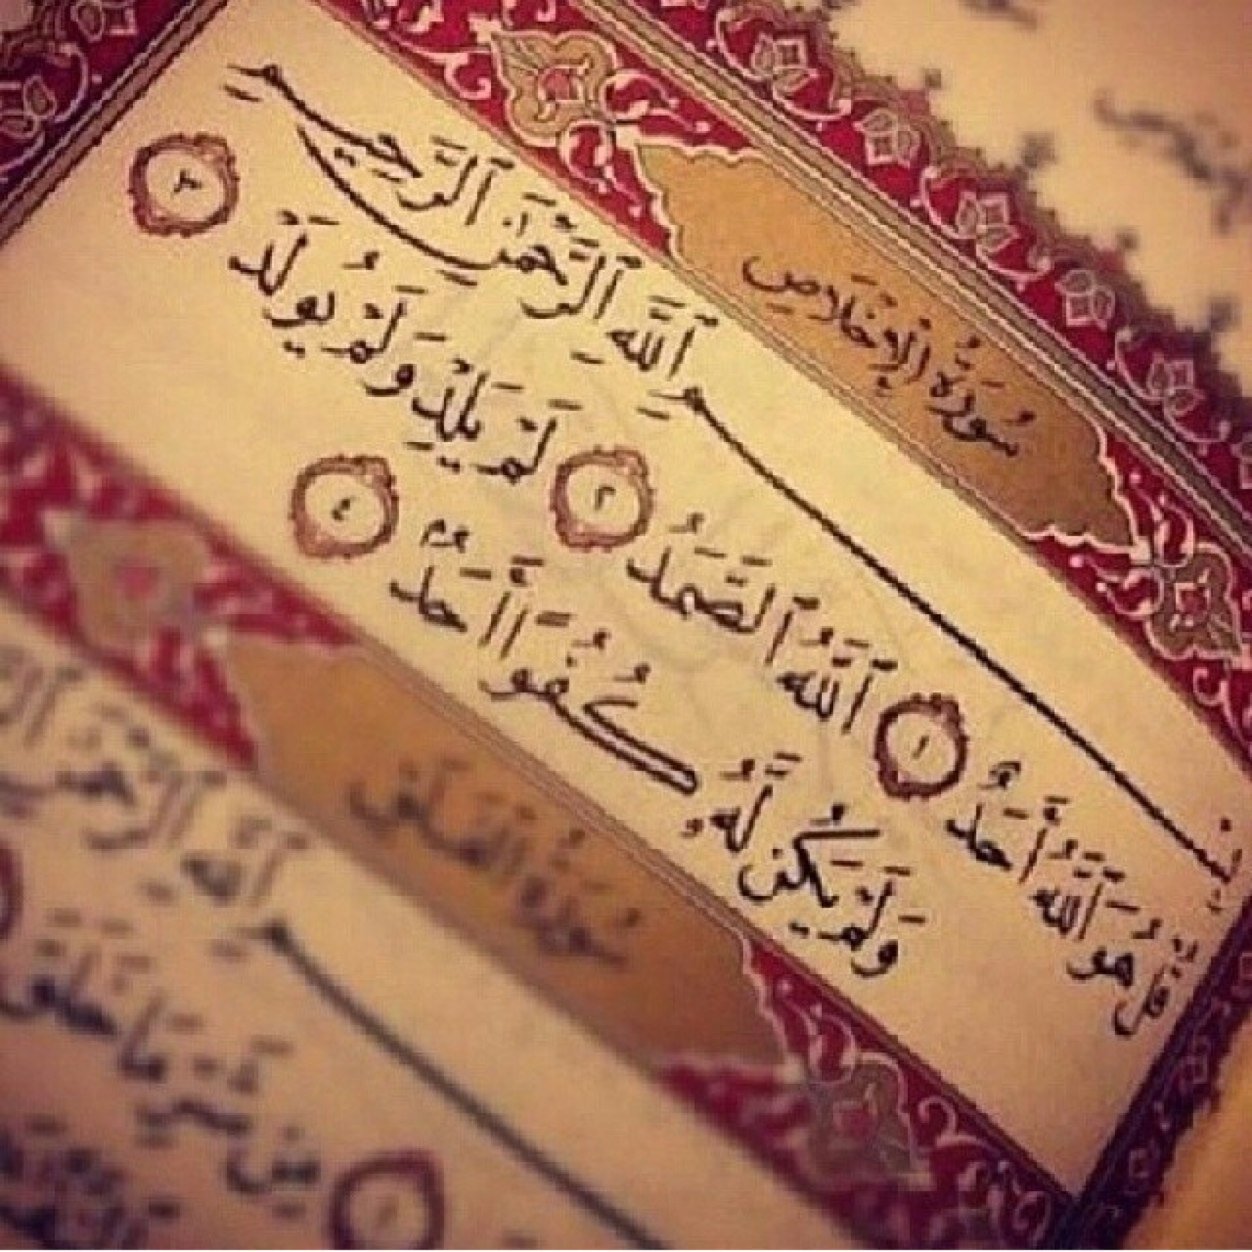 سُورَةُ الْإِخْلَاصِ
بِسْمِ ٱللَّهِ ٱلرَّحْمَٰنِ ٱلرَّحِيمِ
قُلْ هُوَ ٱللَّهُ أَحَدٌ ١ ٱللَّهُ ٱلصَّمَدُ ٢ لَمْ يَلِدْ وَلَمْ يُولَدْ ٣
وَلَمْ يَكُن لَّهُۥ كُفُوًا أَحَدٌۢ ٤
سُورَةُ الْفَلَقِ
بِسْمِ ٱللَّهِ ٱلرَّحْمَٰنِ
١ مِن شَرِّ مَا خَلَقَ